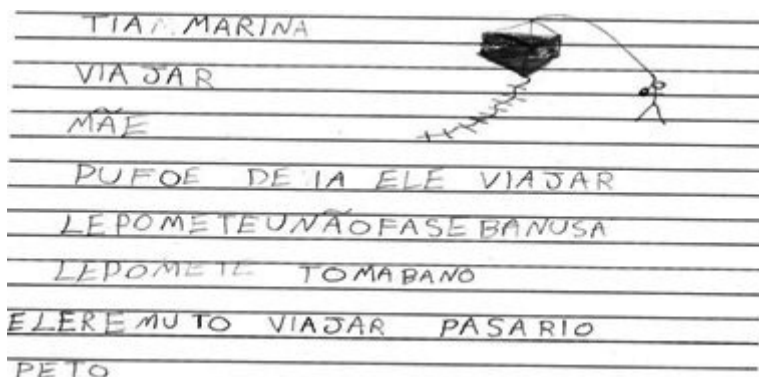 TIA MARINA
VIAJAR
MÃE
PUFOE DE IA ELE VIAJAR
LEPOMETEUNÃOFASEBANUSA
LEPOMETE TOMABANO
ELEREMUTO VIAJAR PASARIO
PETO